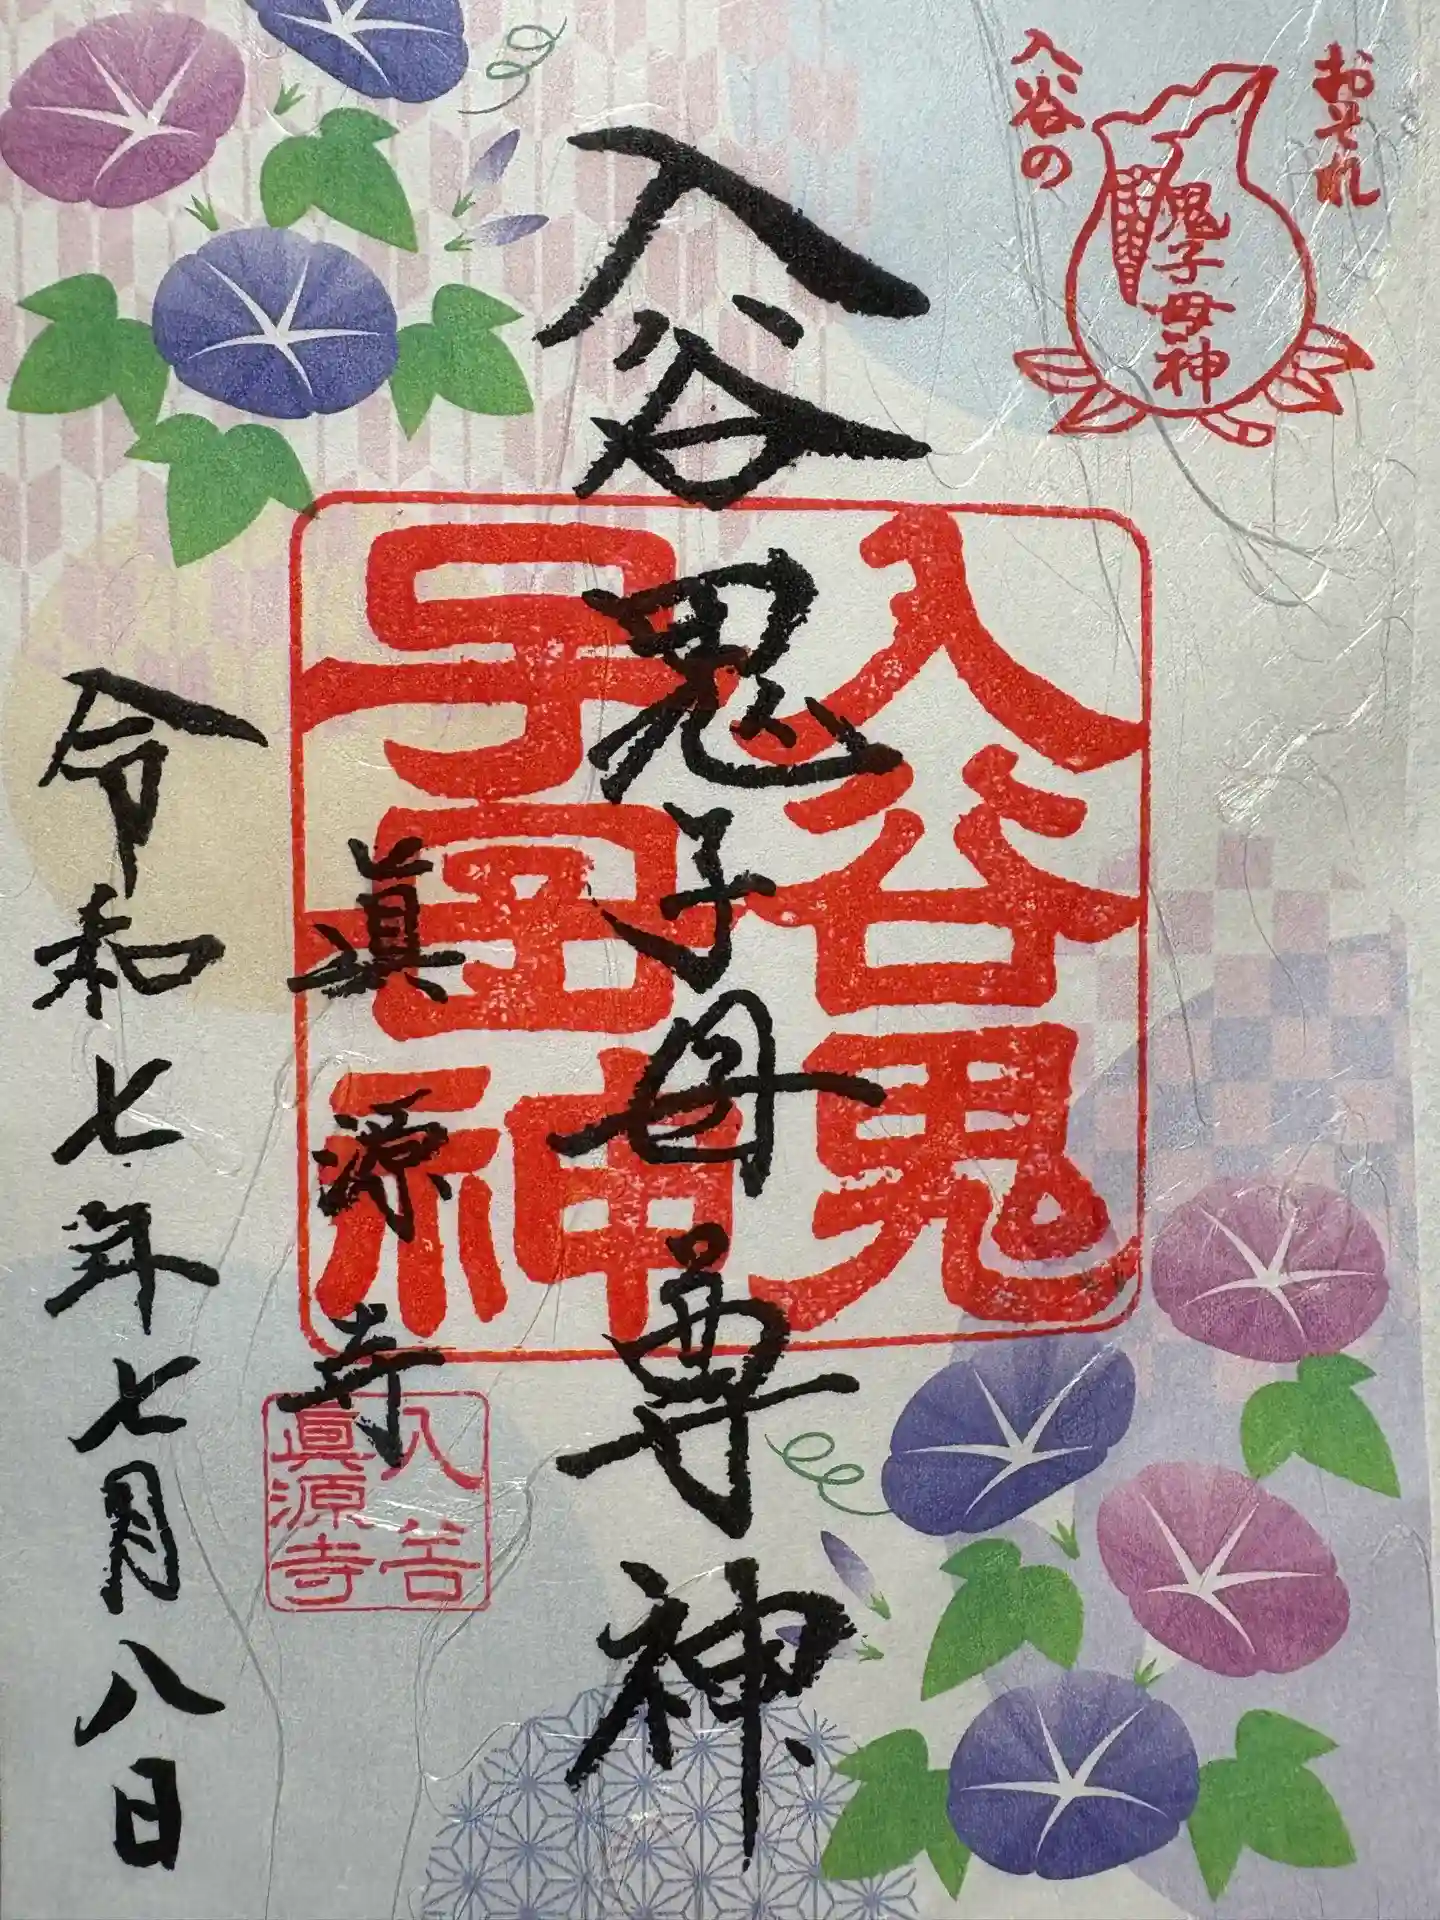 おそれ
入谷の
鬼子母神
入谷鬼子母尊神
入谷鬼
子母神
眞源寺
入谷
眞源寺
令和七年七月八日